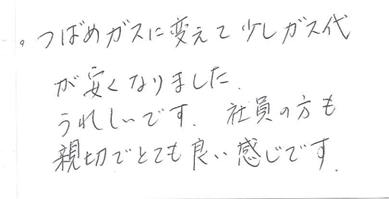 。つばめガスに変えて少しガス代
が安くなりました.
うれしいです. 社員の方も
親切でとても良い感じです.